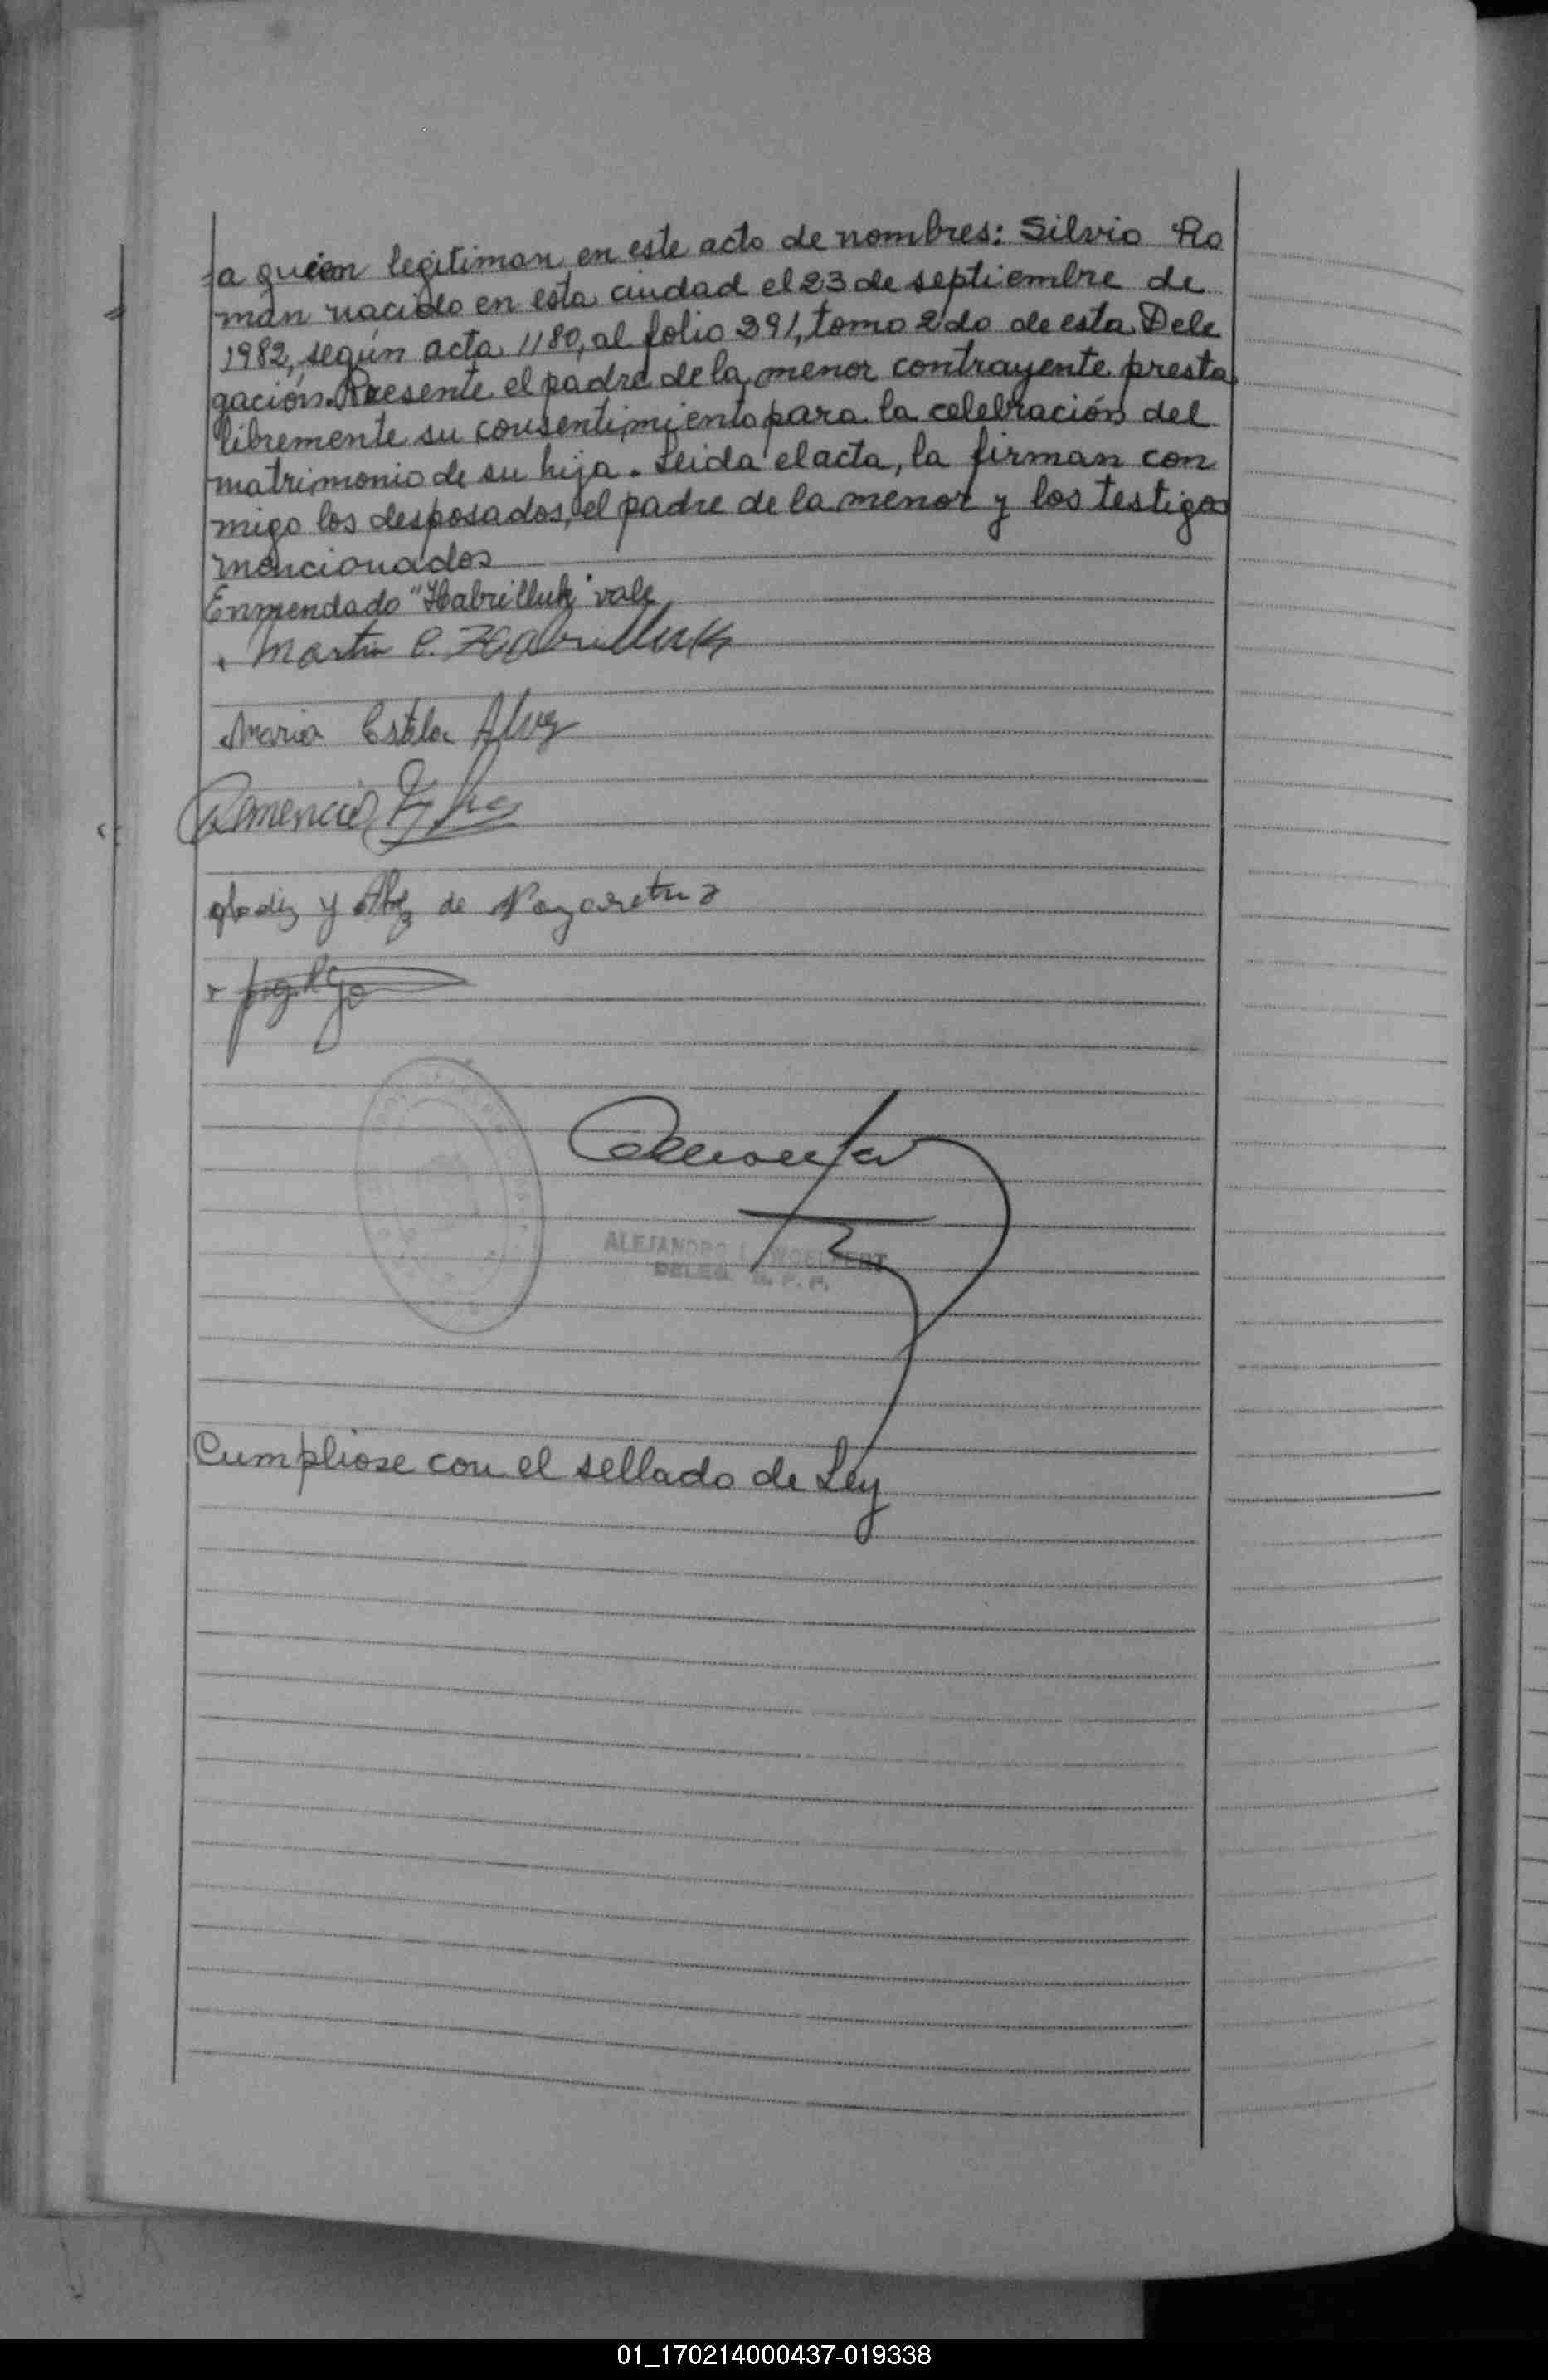 a quien legitiman en este acto de nombres: Silvio Ro
mán nacido en esta ciudad el 23 de septiembre de
1982, según acta 1180, al folio 391, tomo 2do de esta Dele
gación. Presente el padre de la menor contrayente presta
libremente su consentimiento para la celebración del
matrimonio de su hija. Leida el acta, la firman con
migo los desposados, el padre de la menor y los testigos
mencionados
Enmendado "Habrilluk" vale
Martin C. Habrilluk
Maria Estela Alvez
gladiz y Alvez de
ALEJANDRO L. WOELFERT
DELEG. R. P. P.
Cumpliose con el sellado de Ley
01_170214000437-019338